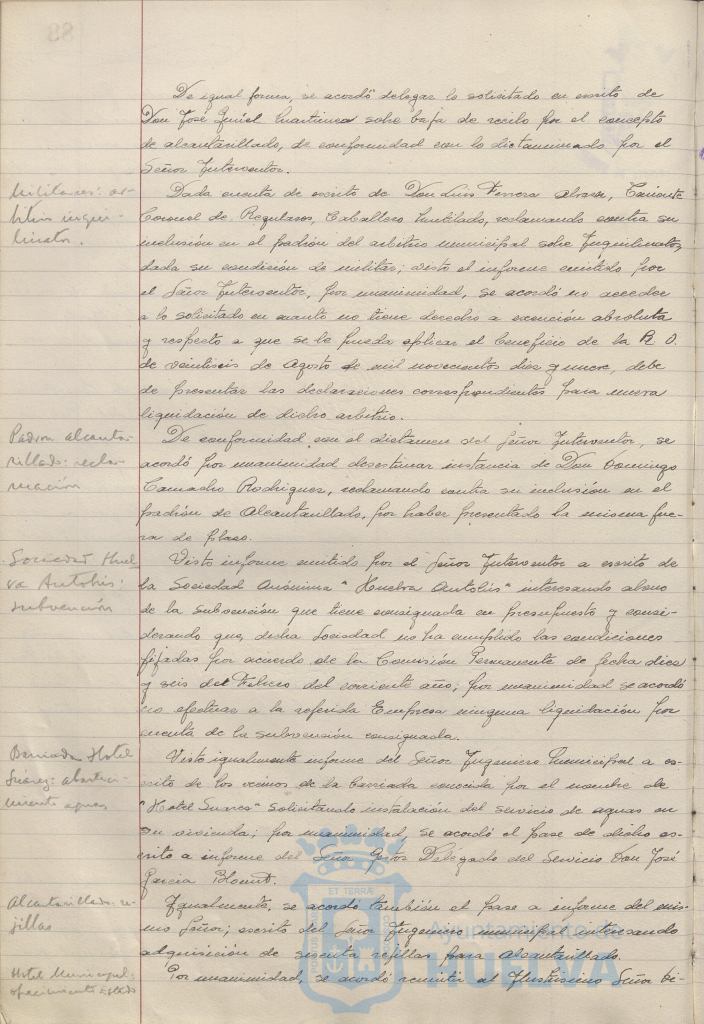 88
De igual forma, se acordó delegar lo solicitado en escrito de
Don José Martinez sobre baja de recibo por el concepto
de alcantarillado, de conformidad con lo dictaminado por el
Señor Interventor.
Militares: ar-
bitrio inqui-
linato.
Dada cuenta de escrito de Don Luis Ferrera Alvarez, Teniente
Coronel de Regulares, Caballero Mutilado, reclamando contra su
inclusión en el padrón del arbitrio municipal sobre Inquilinatos,
dada su condición de militar; visto el informe emitido por
el Señor Interventor, por unanimidad, se acordó no acceder
a lo solicitado en cuanto no tiene derecho a exención absoluta
y respecto a que se le pueda aplicar el beneficio de la R. O.
de veintiseis de Agosto de mil novecientos diez y nueve, debe
de presentar las declaraciones correspondientes para nueva
liquidación de dicho arbitrio.
Padron alcanta-
rillado: recla-
mación
De conformidad con el dictamen del Señor Interventor, se
acordó por unanimidad desestimar instancia de Don Domingo
Camacho Rodriguez, reclamando contra su inclusión en el
padrón de Alcantarillado, por haber presentado la misma fue-
ra de plazo.
Sociedad Huel
va Autobús:
subvención
Visto informe emitido por el Señor Interventor a escrito de
la Sociedad Anónima "Huelva Autobús" interesando abono
de la subvención que tiene consignada en presupuesto y consi-
derando que, dicha Sociedad no ha cumplido las condiciones
fijadas por acuerdo de la Comisión Permanente de fecha diez
y seis de Febrero del corriente año; por unanimidad se acordó
no efectuar a la referida Empresa ninguna liquidación por
cuenta de la subvención consignada.
Barriada Hotel
Suárez: abasteci-
miento aguas
Visto igualmente informe del Señor Ingeniero Municipal a es-
crito de los vecinos de la barriada conocida por el nombre de
"Hotel Suarez" solicitando instalación del servicio de aguas en
su vivienda; por unanimidad, se acordó el pase de dicho es-
crito a informe del Señor Gestor Delegado del Servicio Don José
Garcia
Alcantarillado: re-
jillas
Igualmente, se acordó también el pase a informe del mis-
mo Señor; escrito del Señor Ingeniero municipal interesando
adquisición de sesenta rejillas para Alcantarillado.
Hotel Municipal:
ofrecimiento Estado
Por unanimidad, se acordó remitir al Ilustrisimo Señor Di-
ET TERRÆ
Ayuntamiento
HUELVA